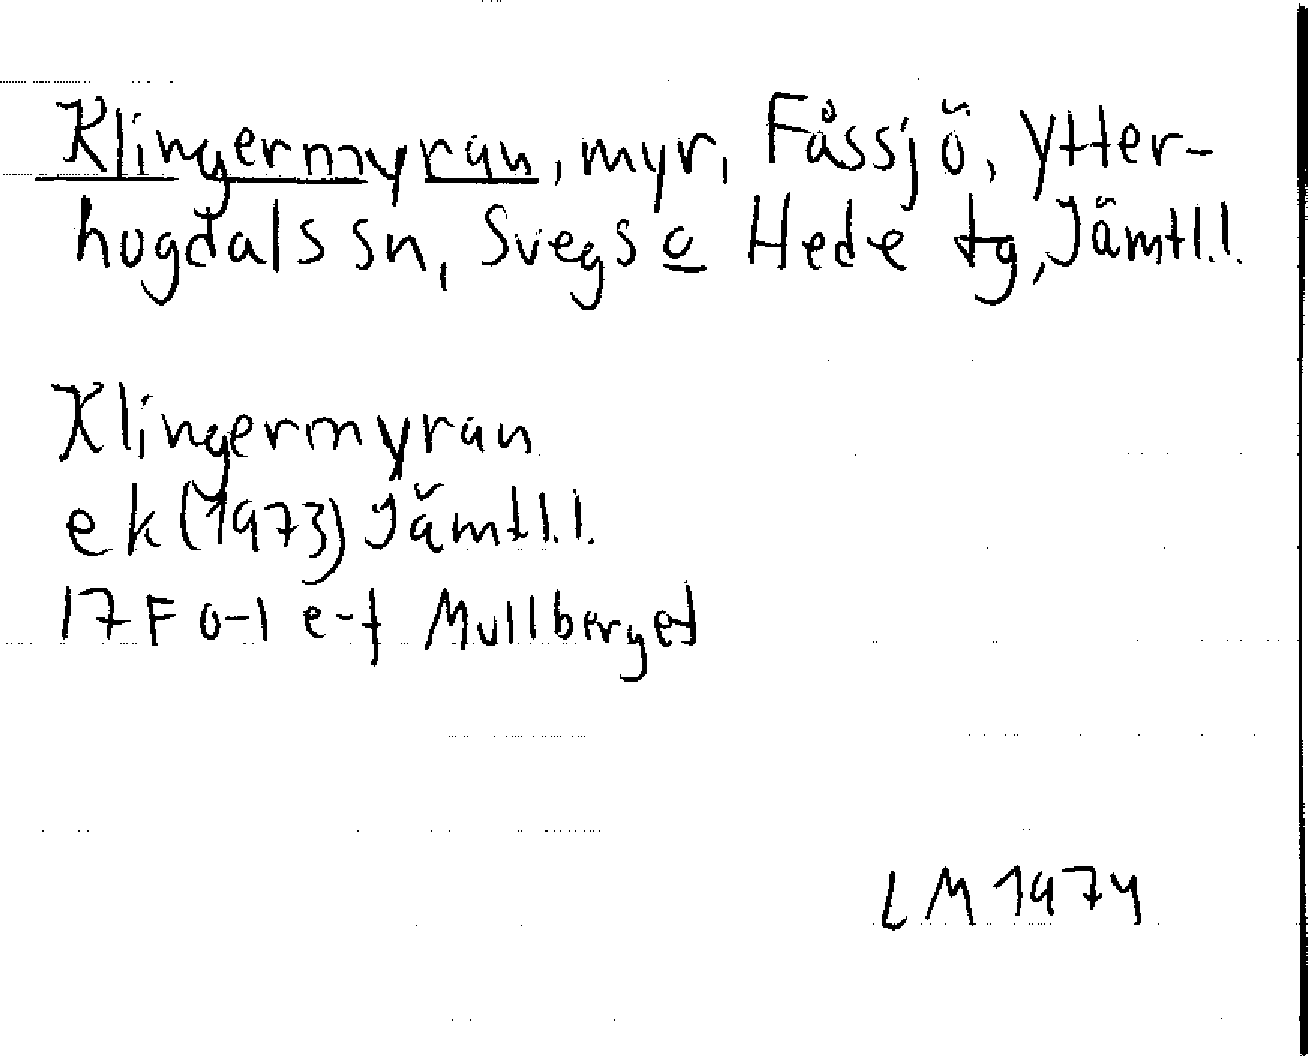 Klingermyran, myr, Fåssjö, Ytter-
hogdals sn, Svegs o Hede tg, Jämtl.l.
Klingermyran
ek (1973) Jämtl.l.
17F 0-1 e-f Mullberget
LM 1974